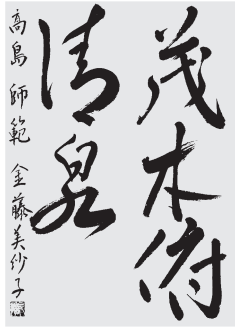 茂木俯
清泉
高島 師範 金藤美紗子